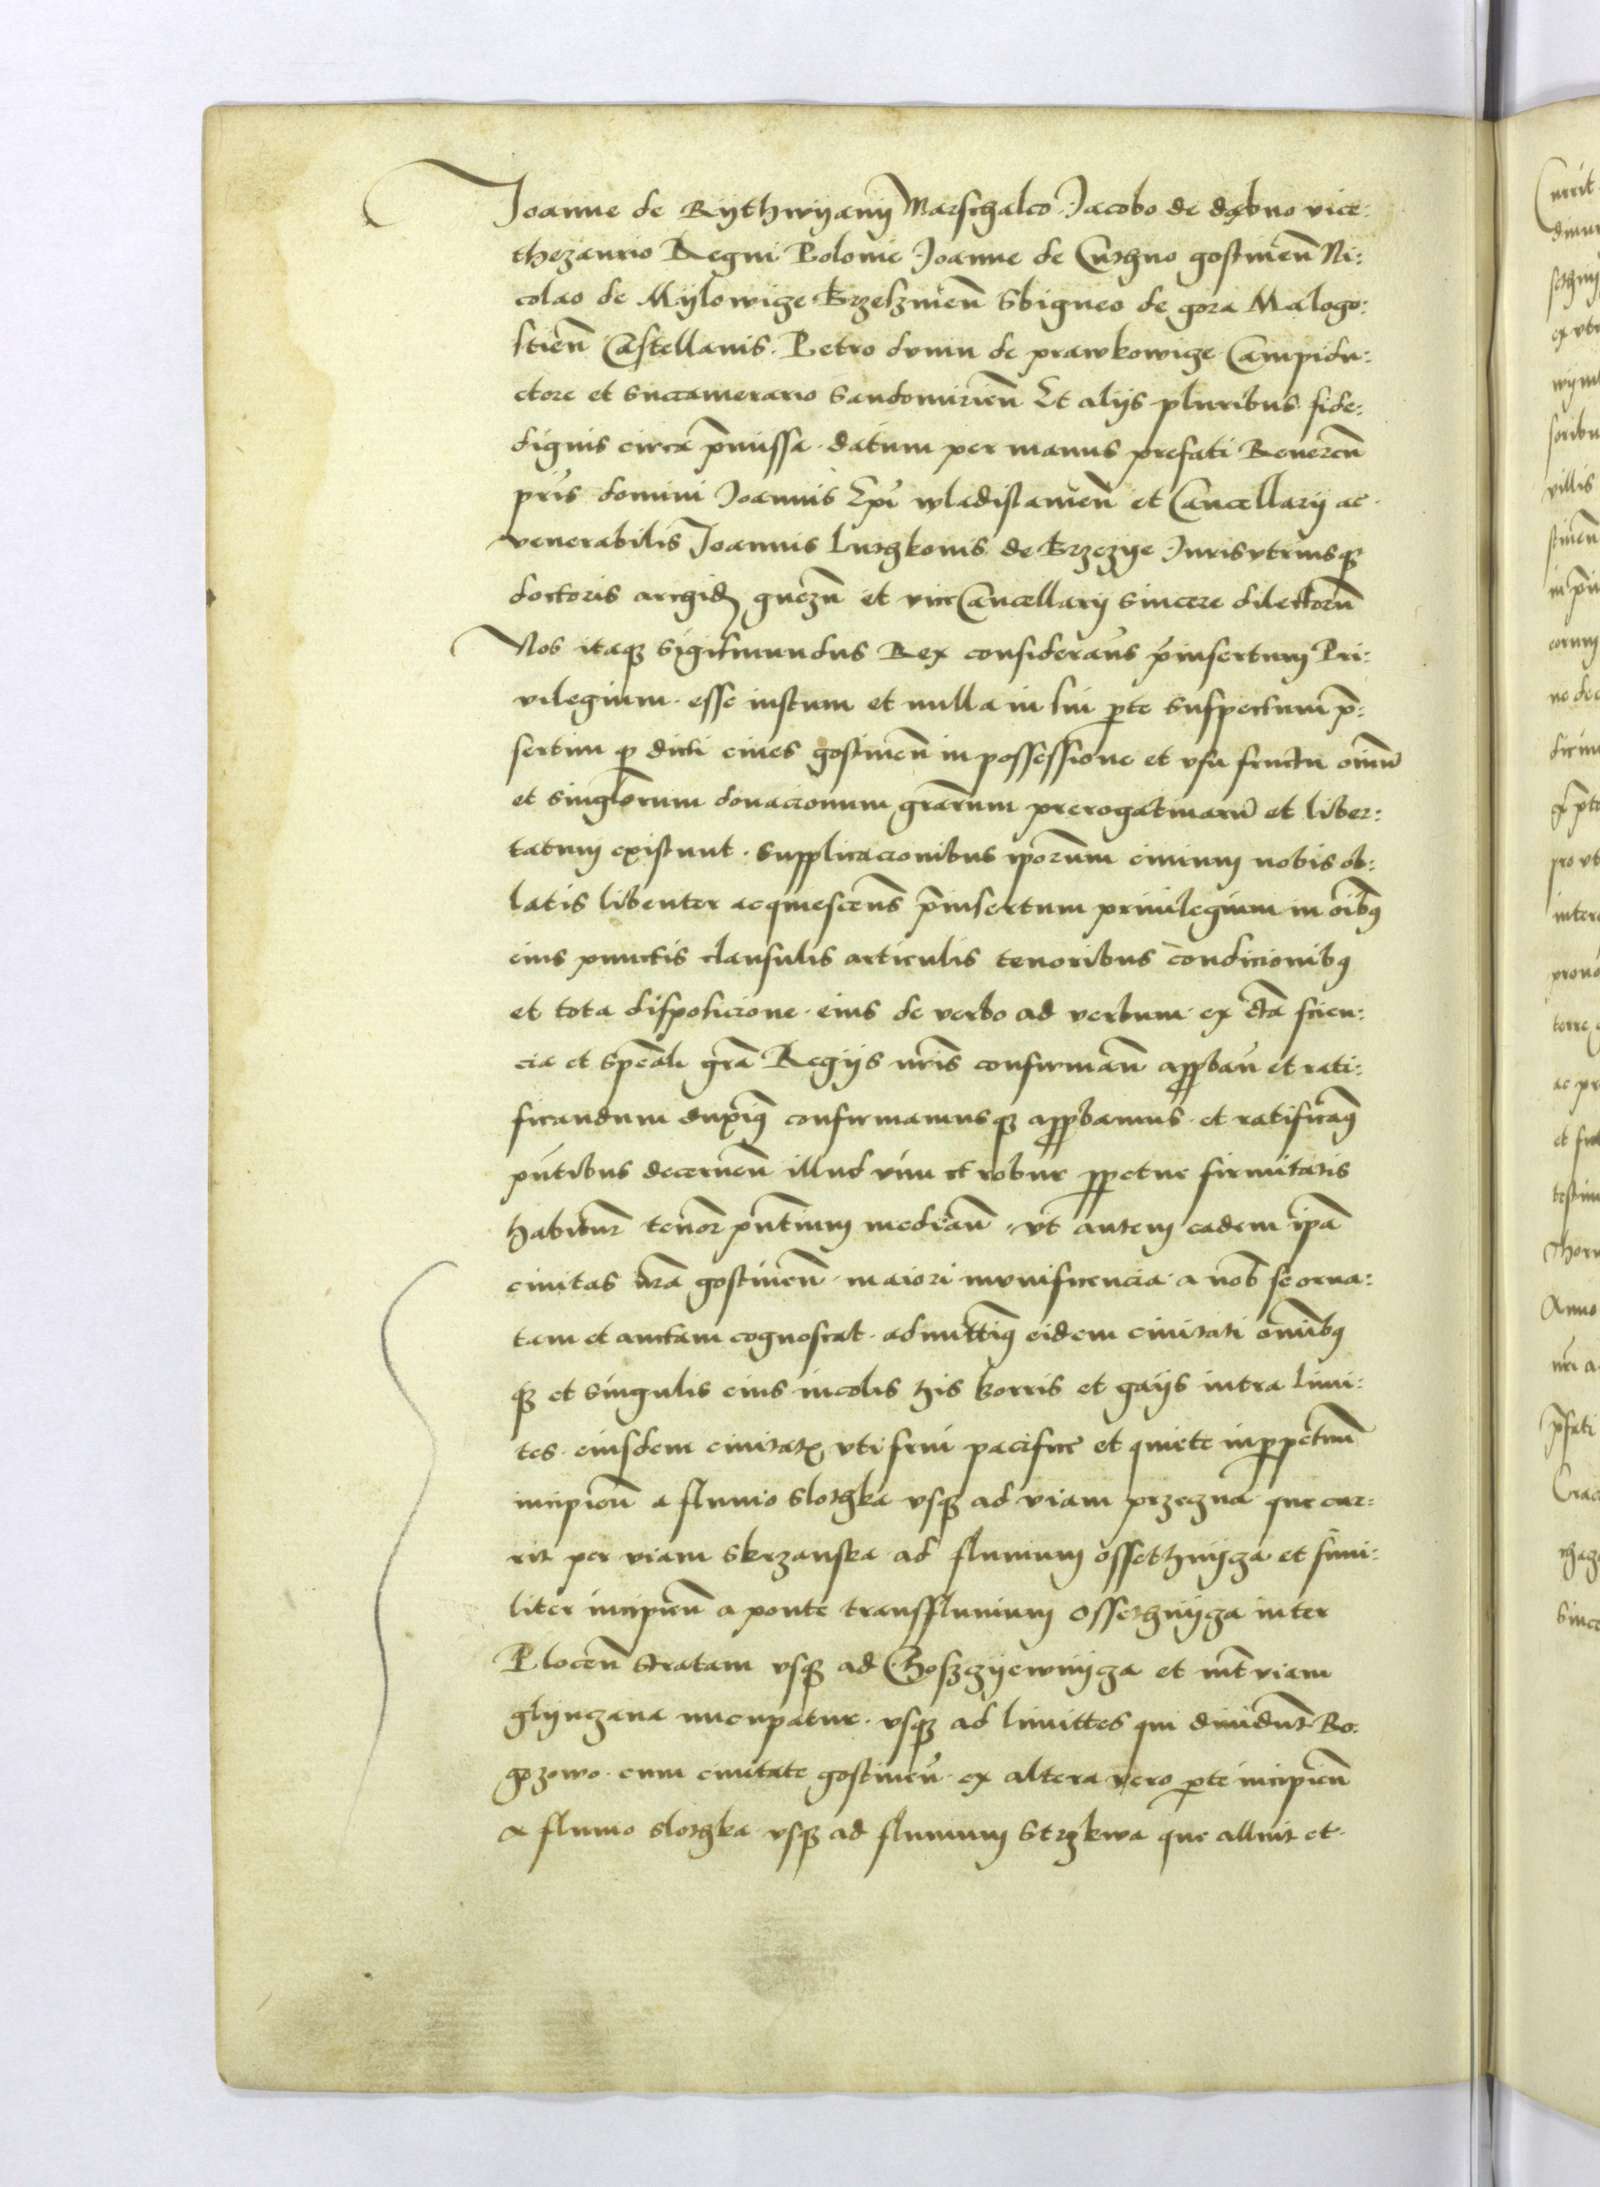 Joanne de Rythwyany Marschalco Jacobo de dąbno vice:
thezaurio Regni Polonie Joanne de Cuthno gostinen̄ Ni:
colao de Mylowicze Brzeszinen̄ Sbigneo de gora Malogo:
stien̄ Castellanis. Petro dunin de prawkowicze Campidu:
ctore et Succamerario Sandomirien̄ Et alijs pluribus fide:
dignis circa p̄missa. datum per manus prefati Reueren̄
pris domini Joannis Epī wladislauien̄ et Cancellarij ac
venerabilis Joannis Luthkonis de Brzezye Jurisvtriusqꝫ
doctoris archid gnezn̄ et viceCancellarij sincere dilectorū
Nos itaqꝫ Sigismundus Rex considerān̄s p̄insertum Pri:
vilegium. esse iustum et nulla in sui ꝑte Suspectum p̄:
sertim ꝙ dicti ciues gostinen̄ in possessione et vsu fructu oīm̄
et singlorum donacionum grārum prerogatiuarū et liber:
tatum existunt. Supplicacionibus ip̄orum ciuium nobis ob:
latis libenter acquiescen̄s p̄insertum priuilegium in oībꝫ
eius punctis clausulis articulis tenoribus condicionibꝫ
et tota disposicione. eius de verbo ad verbum. ex cta scien:
cia et Speāli grā Regijs nrīs confirman̄ appꝛban̄ et rati:
ficandum duximꝫ confirmamusqꝫ appꝛbamus. et ratificamꝫ
pn̄tibus decernen̄ illud vim et robur ꝑpetue firmitatis
habitur̄ tenor̄ pn̄tium median̄. vt autem eadem ip̄a
ciuitas nrā gostinen̄. maiori munificencia. a nob̄ se orna:
tam et auctam cognoscat. admittimꝫ eidem ciuitati omībꝫ
qꝫ et singulis eius incolis his borris et gayis intra limi:
tes. eiusdem ciuitatis vti frui pacifice et quiete inꝑpetuū
incipien̄ a fluuio Slothka vsqꝫ ad viam przeczna que cur:
rit per viam Skrzanska ad fluuium ossethnycza et simi:
liter incipien̄ a ponte transfluuium Ossethnycza inter
Plocen̄ Stratam vsqꝫ ad Choszczyewnycza et int viam
glynczana nucupatur. vsqꝫ ad limittes qui diuidunt Ro:
gozowo. cum ciuitate gostinen̄. ex altera vero ꝑte incipien̄
a fluuio Slothka vsqꝫ ad fluuium Strzkwa que alluit et